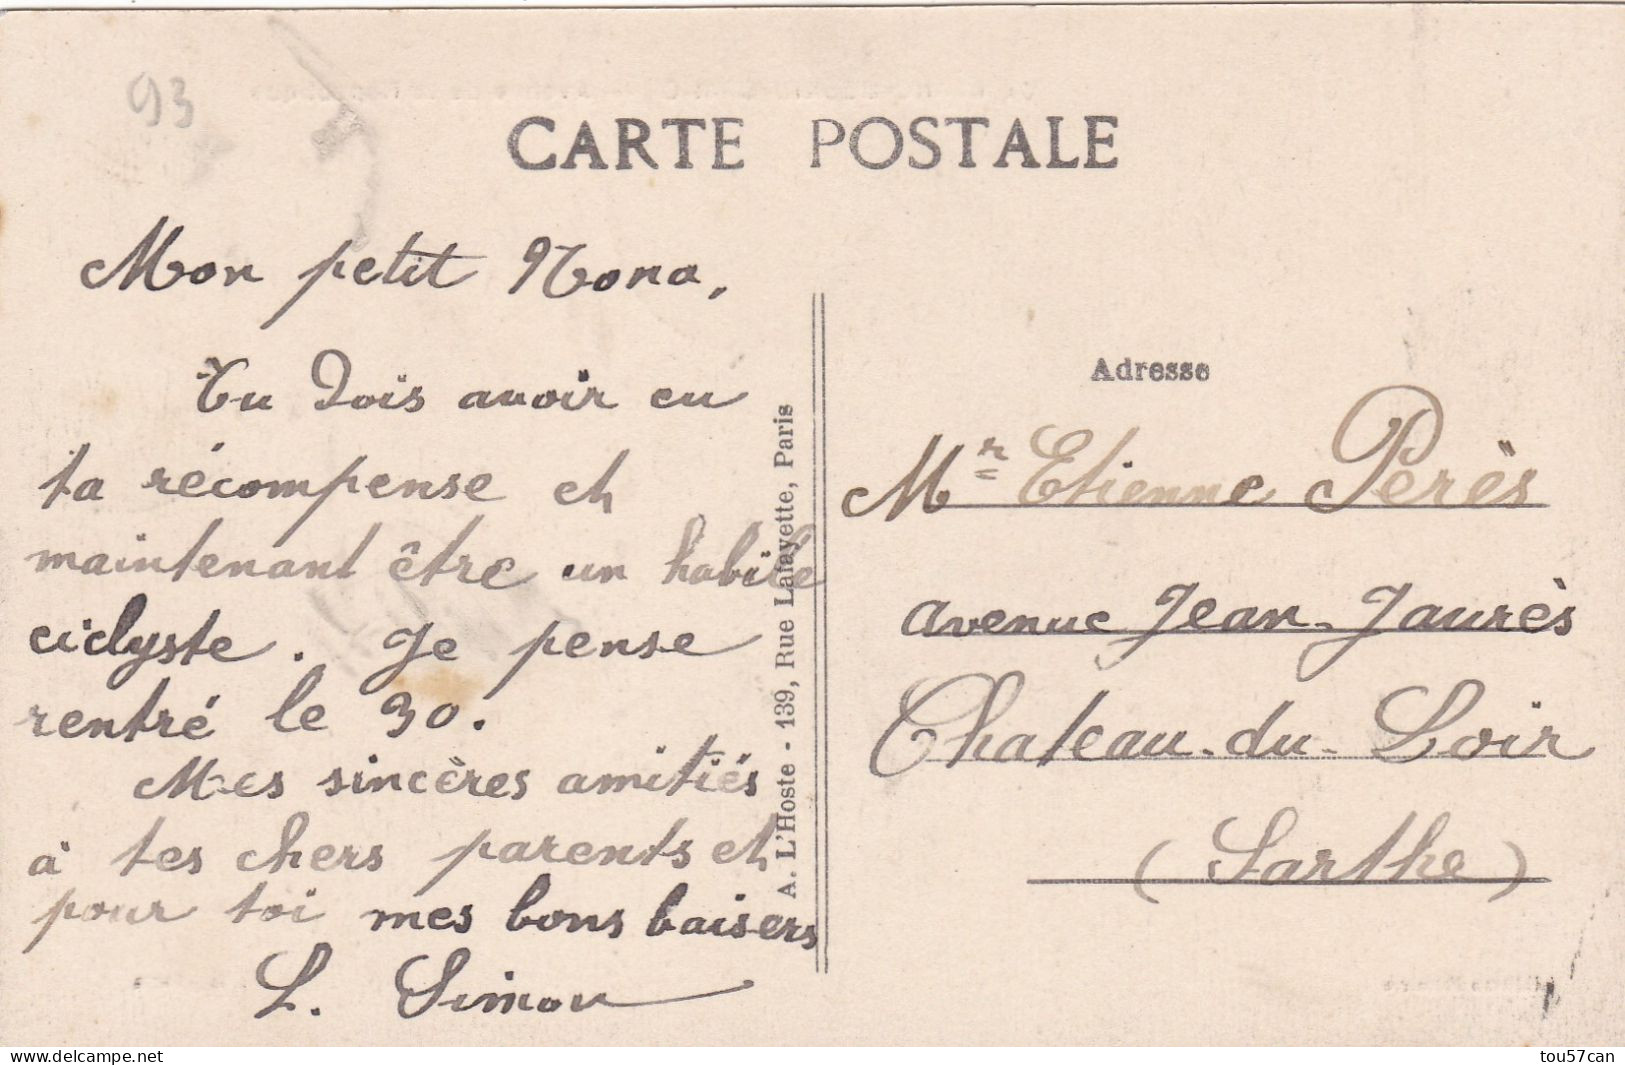 93
CARTE POSTALE
Mon petit Nono,
Tu dois avoir eu
ta récompense et
maintenant être un habile
ciclyste. Je pense
rentré le 30.
Mes sincères amitiés
à tes chers parents et
pour toi mes bons baisers
L. Simon
A. L'Hoste - 139, Rue Lafayette, Paris
Adresse
Mr Etienne Perès
avenue Jean-Jaurès
Chateau-du-Loir
(Sarthe)
delcampe.net
tou57can